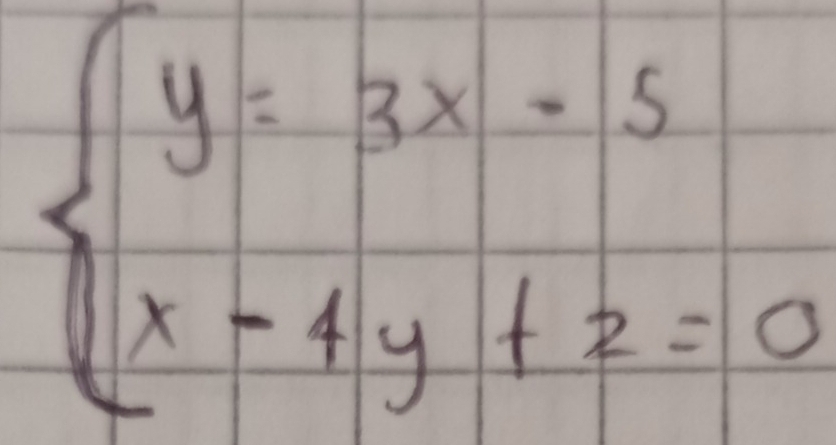 y = 3x - 5
x - 4y + 2 = 0